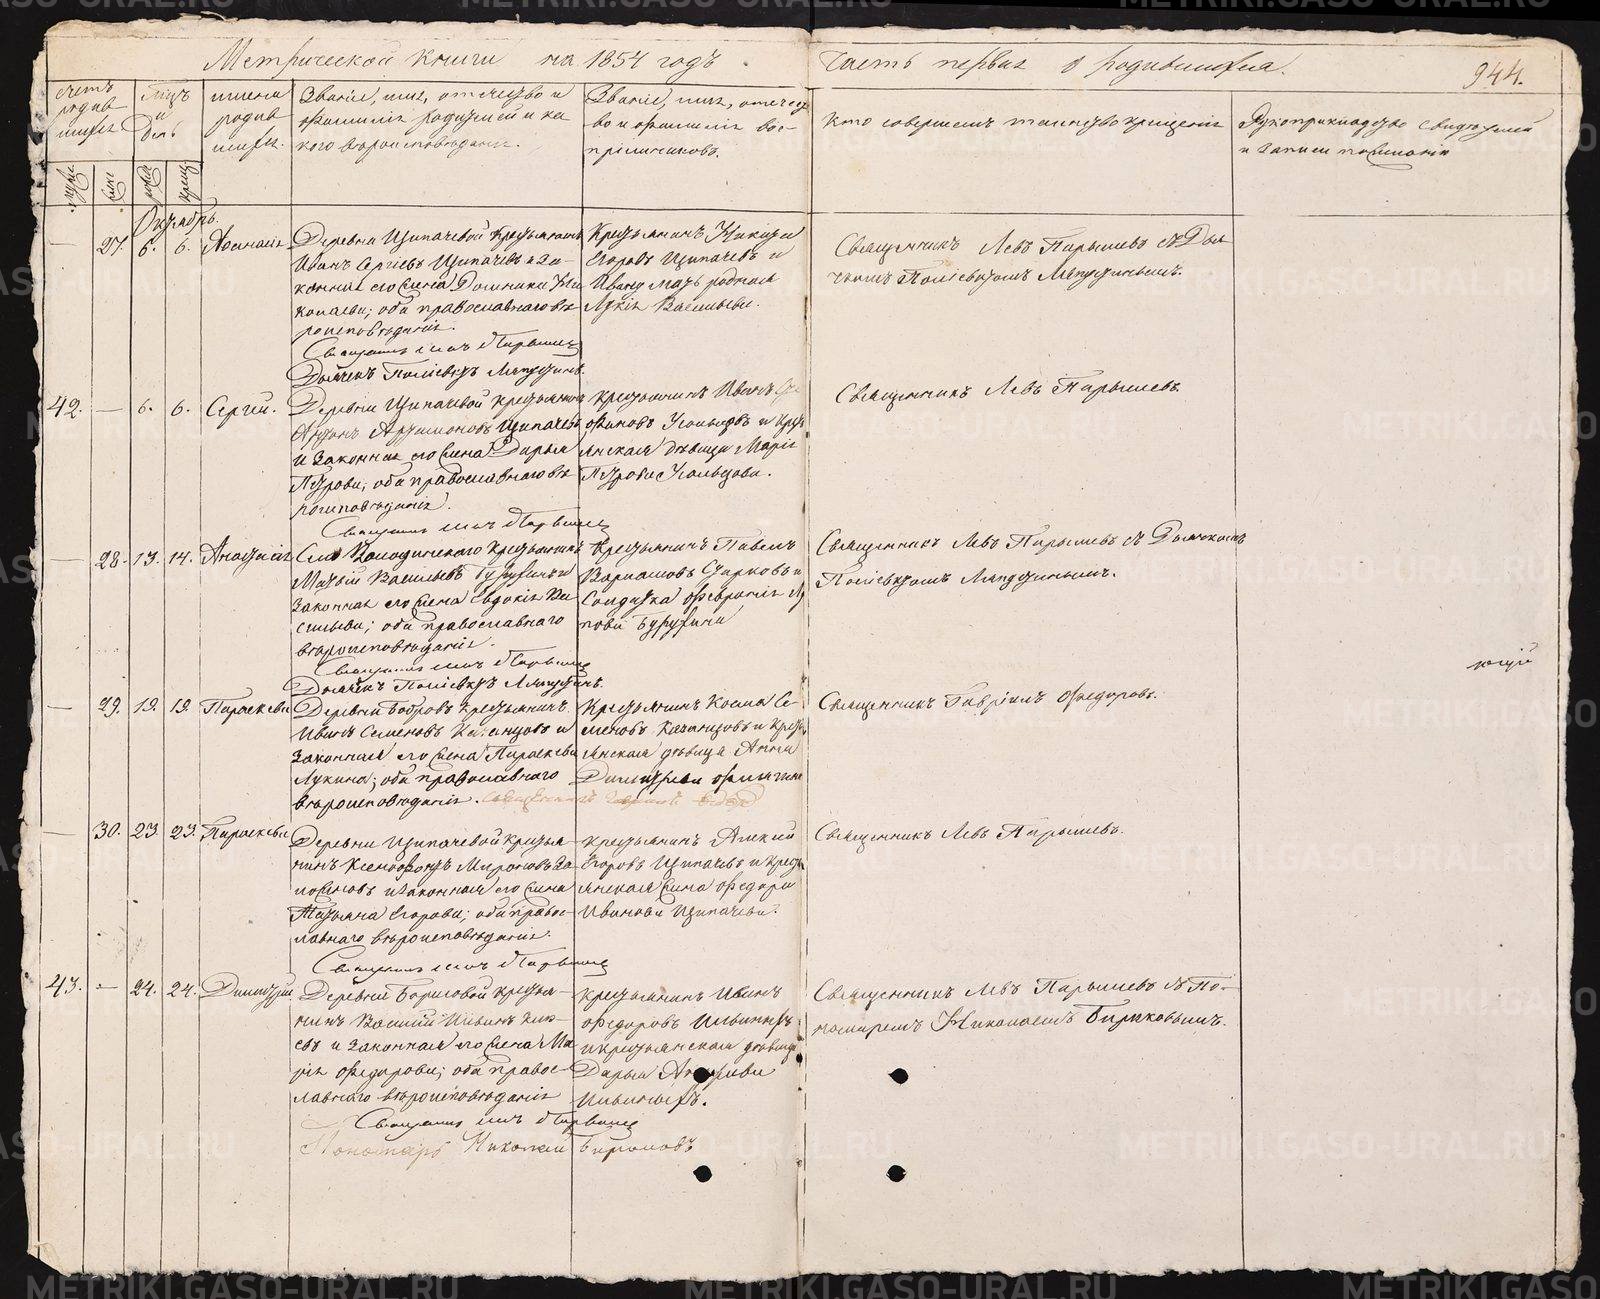 Метрической книги на 1854 годъ.
Часть первая о родившихся.
944.
Счетъ родив шихся
Мцъ и день
имена родив шихся.
Званіе, имя, отечество и
фамилія родителей и ка
кого вѣроисповѣданія.
Званіе, имя, отечест
во и фамилія вос-
пріемниковъ.
Кто совершалъ таинство крещенія
Рукоприкладство свидѣтелей
и записи по желанію
муже
женс
рожд
крещ
Октябрь.
— 27. 6. 6.
Деревни Щипачевой крестьянинъ
Иванъ Сергіевъ Щипачевъ и за-
конная его жена Домника Ни
колаева; оба православнаго вѣ
роисповѣданія.
Священникъ Левъ Парышевъ
Дьячекъ Поліевктъ Ляпустинъ.
Крестьянинъ Никита
Егоровъ Щипачевъ и
Лукія Васильева.
Священникъ Левъ Парышевъ съ Дья
чкомъ Поліевктомъ Ляпустинымъ.
42. — 6. 6. Сергій.
Деревни Щипачевой крестьянинъ
Антонъ Артамоновъ Щипачевъ
и законная его жена Дарья
Петрова; оба православнаго вѣ
роисповѣданія.
Священникъ Левъ Парышевъ
Крестьянинъ Иванъ
Усольцовъ и крест
янская дѣвица Марія
Петрова Усольцова.
Священникъ Левъ Парышевъ.
— 28. 13. 14. Анастасія
Села крестьянинъ
Матвѣй Васильевъ Бурухинъ и
законная его жена Евдокія Ва
сильева; оба православнаго
вѣроисповѣданія.
Священникъ Левъ Парышевъ
Дьячекъ Поліевктъ Ляпустинъ.
Крестьянинъ Павелъ
Варламовъ Старковъ и
Солдатка Февронія
Бурухина
Священникъ Левъ Парышевъ съ Дьячкомъ
Поліевктомъ Ляпустинымъ.
— 29. 19. 19. Параскева
Деревни Бобровъ крестьянинъ
Иванъ Семеновъ Казанцовъ и
законная его жена Параскева
Лукина; оба православнаго
вѣроисповѣданія.
Крестьянинъ Косма Се-
меновъ Казанцовъ и крест
янская дѣвица Анна
Димитріева
Священникъ Гавріилъ Федоровъ.
— 30. 23. 23. Параскева
Деревни Щипачевой крестья-
нинъ Ксенофонтъ Мироновъ За
и законная его жена
Татьяна Егорова; оба право-
лавнаго вѣроисповѣданія.
Священникъ Левъ Парышевъ
Крестьянинъ Алексій
Егоровъ Щипачевъ и крест
янская жена Федора
Иванова Щипачева.
Священникъ Левъ Парышевъ.
43. — 24. 24. Димитрій
Деревни Борисовой крестья-
нинъ Василій Ильинъ
и законная его жена Ма
рія Федорова; оба право-
лавнаго вѣроисповѣданія
Священникъ Левъ Парышевъ
Пономарь Николай Бирюковъ
Крестьянинъ Иванъ
Федоровъ Ильиныхъ
и крестьянская дѣвица
Дарья
Ильиныхъ.
Священникъ Левъ Парышевъ съ По-
номаремъ Николаемъ Бирюковымъ.
METRIKI.GASO-URAL.RU